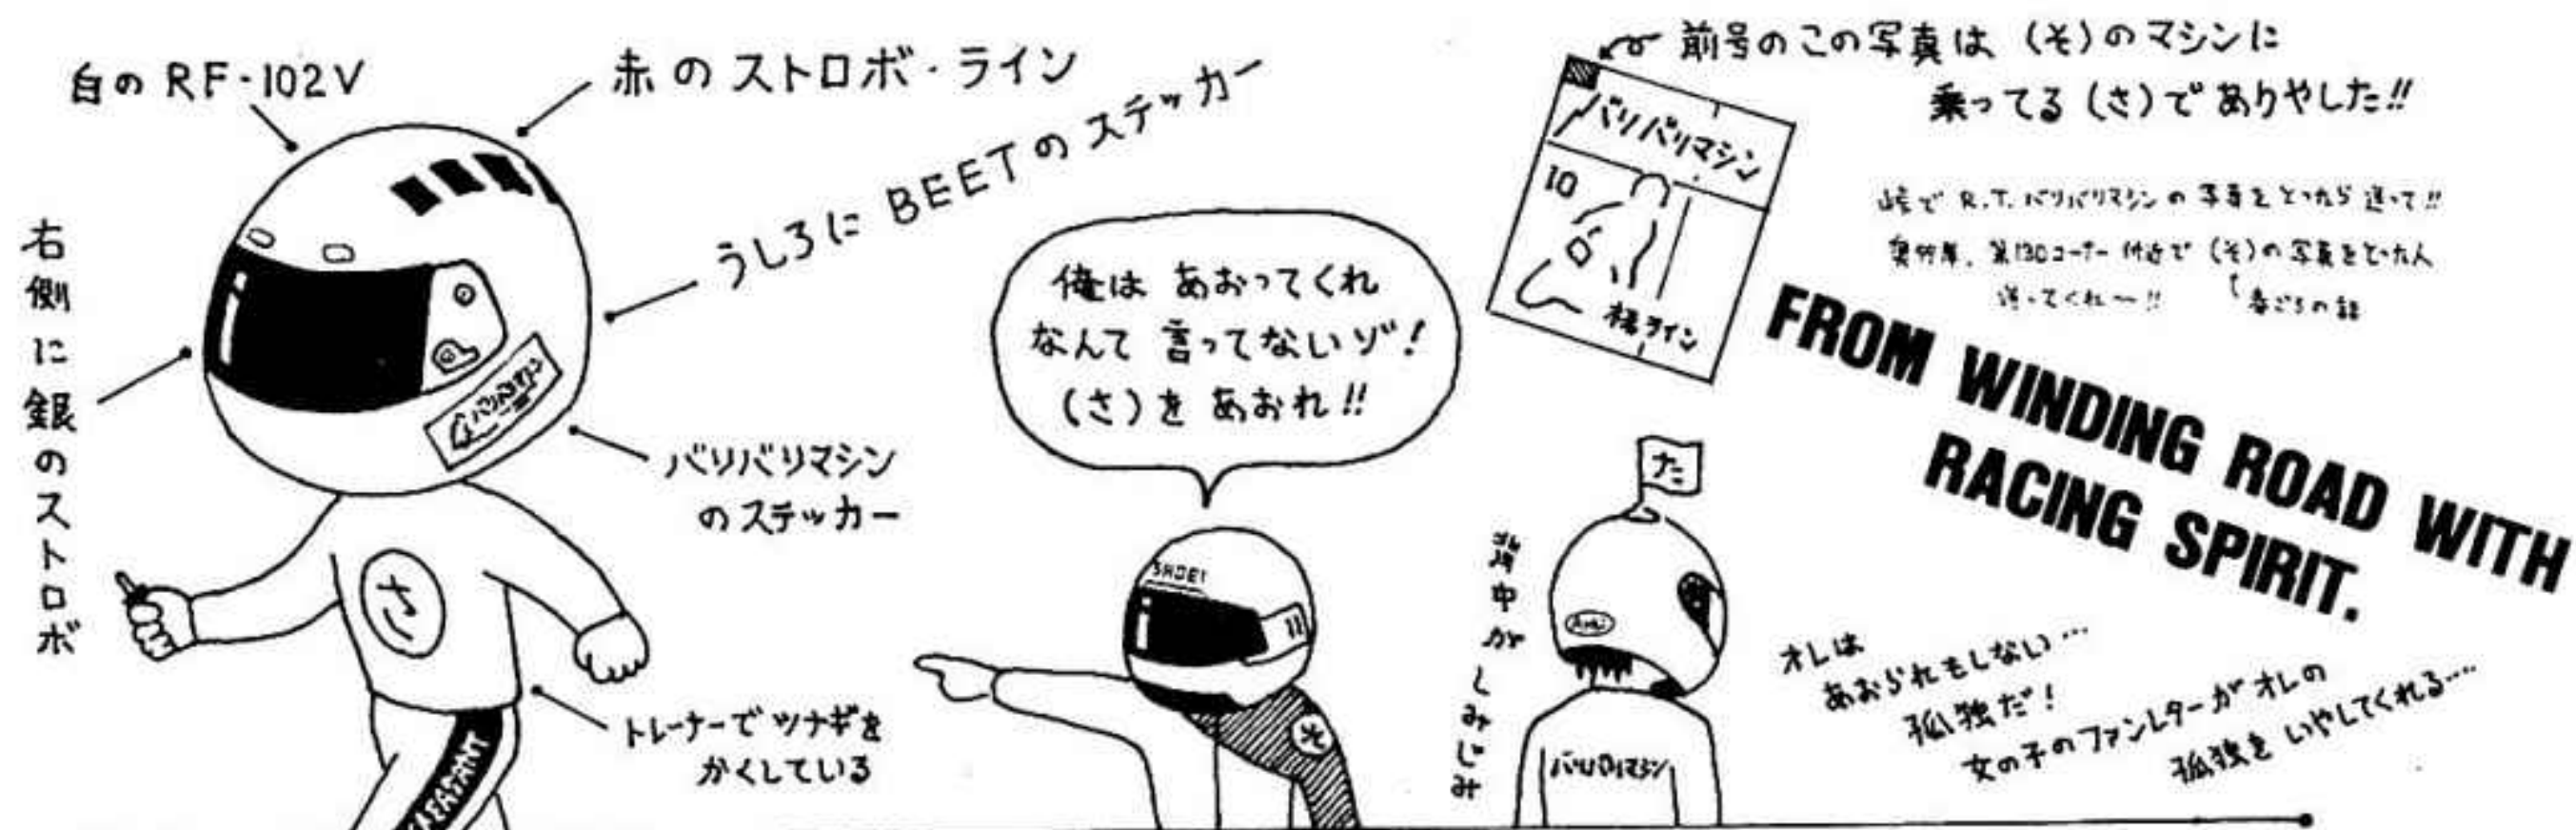 白のRF-102V
赤のストロボ・ライン
うしろにBEETのステッカー
右側に銀のストロボ
バリバリマシン
バリバリマシン
のステッカー
さ
トレーナーでツナギを
かくしている
俺は あおってくれ
なんて 言ってないゾ!
(さ)を あおれ!!
SHOEI
そ
前号のこの写真は (そ)のマシンに
乗ってる (さ)で ありやした!!
バリバリマシン
10
ライン
峠で R.T.バリバリマシンの 写真をとったら 送って!!
第130コーナー付近で (そ)の写真をとった人
送ってくれ〜!!
春ごろの話
FROM WINDING ROAD WITH
RACING SPIRIT.
た
背中がしみじみ
Arai
バリバリマシン
オレは
あおられもしない…
孤独だ!
女の子のファンレターがオレの
孤独を いやしてくれる….